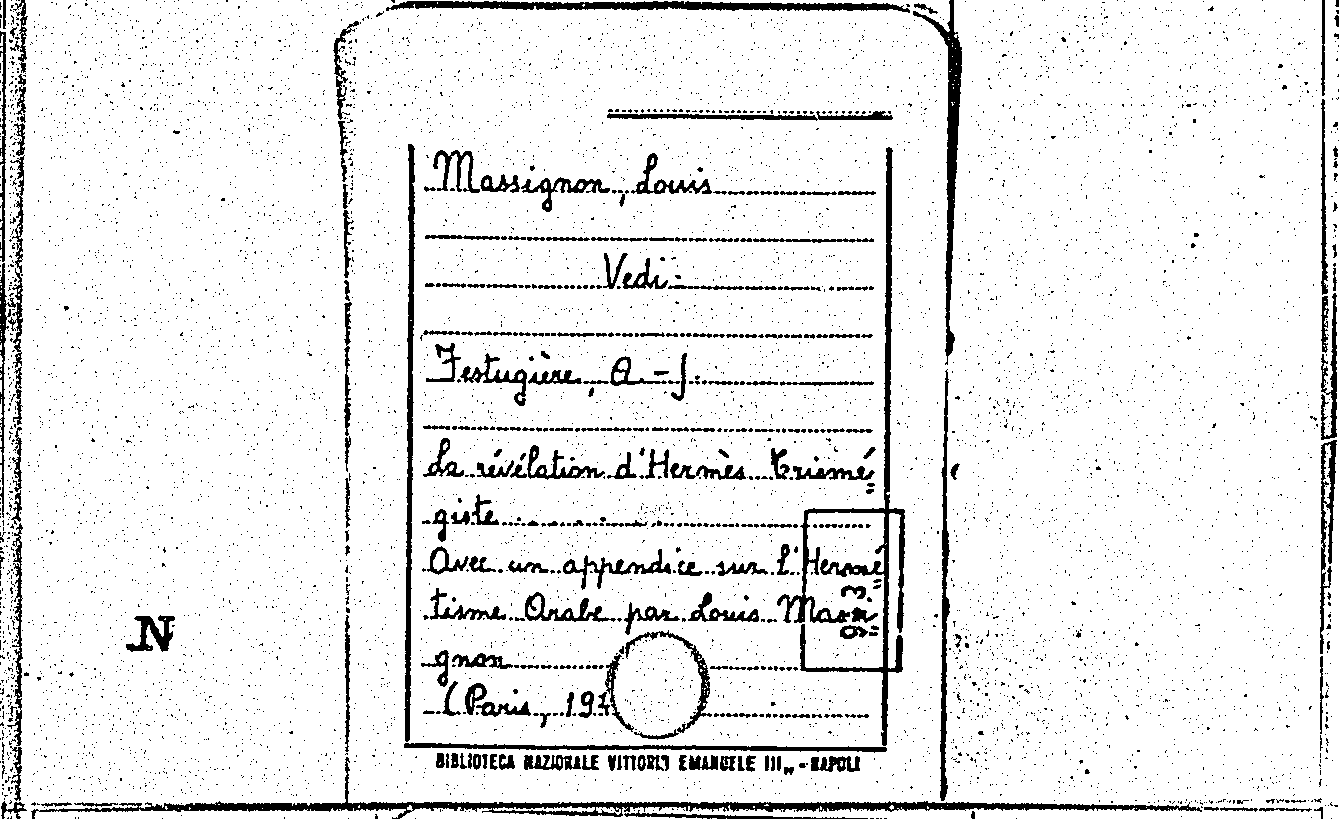 Massignon, Louis
Vedi:
Festugière, A.-J.
La révélation d'Hermès Trismé
giste . . . . .
Avec un appendice sur l'Hermé
tisme Arabe par Louis Massi
gnon
(Paris, 19
93
N
BIBLIOTECA NAZIONALE VITTORIO EMANUELE III„ - NAPOLI